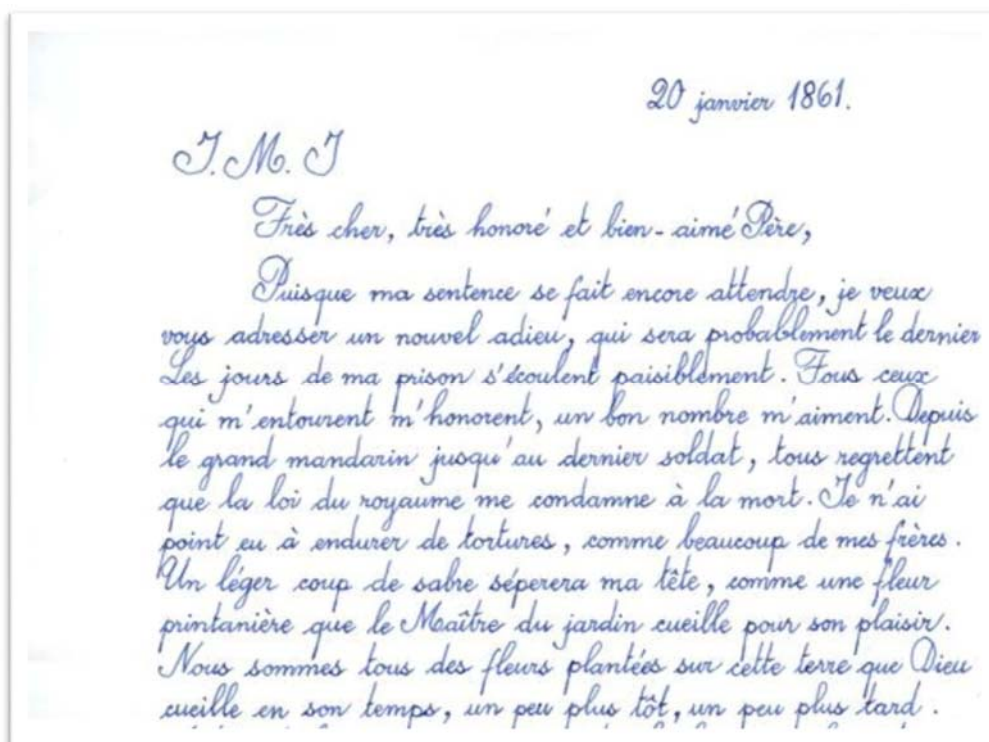 20 janvier 1861.
J. M. J
Très cher, très honoré et bien-aimé Père,
Puisque ma sentence se fait encore attendre, je veux
vous adresser un nouvel adieu, qui sera probablement le dernier
Les jours de ma prison s'écoulent paisiblement. Tous ceux
qui m'entourent m'honorent, un bon nombre m'aiment. Depuis
le grand mandarin jusqu'au dernier soldat, tous regrettent
que la loi du royaume me condamne à la mort. Je n'ai
point eu à endurer de tortures, comme beaucoup de mes frères.
Un léger coup de sabre séperera ma tête, comme une fleur
printanière que le Maître du jardin cueille pour son plaisir.
Nous sommes tous des fleurs plantées sur cette terre que Dieu
cueille en son temps, un peu plus tôt, un peu plus tard.